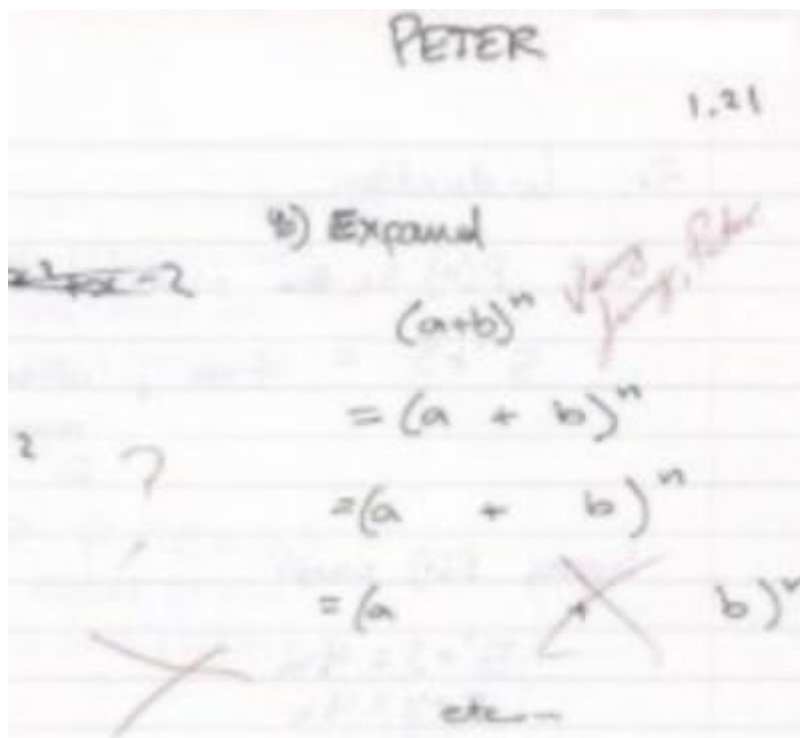 PETER
1.21
3) Expand
Very funny, Peter
-2
(a+b)ⁿ
= (a + b)ⁿ
2 ?
=(a + b)ⁿ
=(a b)ⁿ
etc...